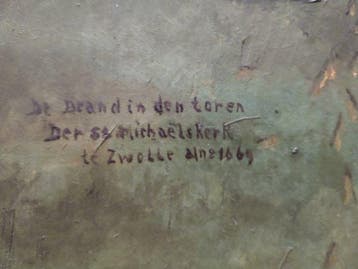 De Brand in den toren
Der St Michaëlskerk
te Zwolle Ano 1669